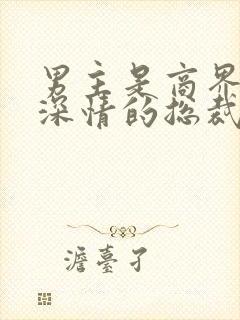 男主是商界
深情的总裁
澹台孑